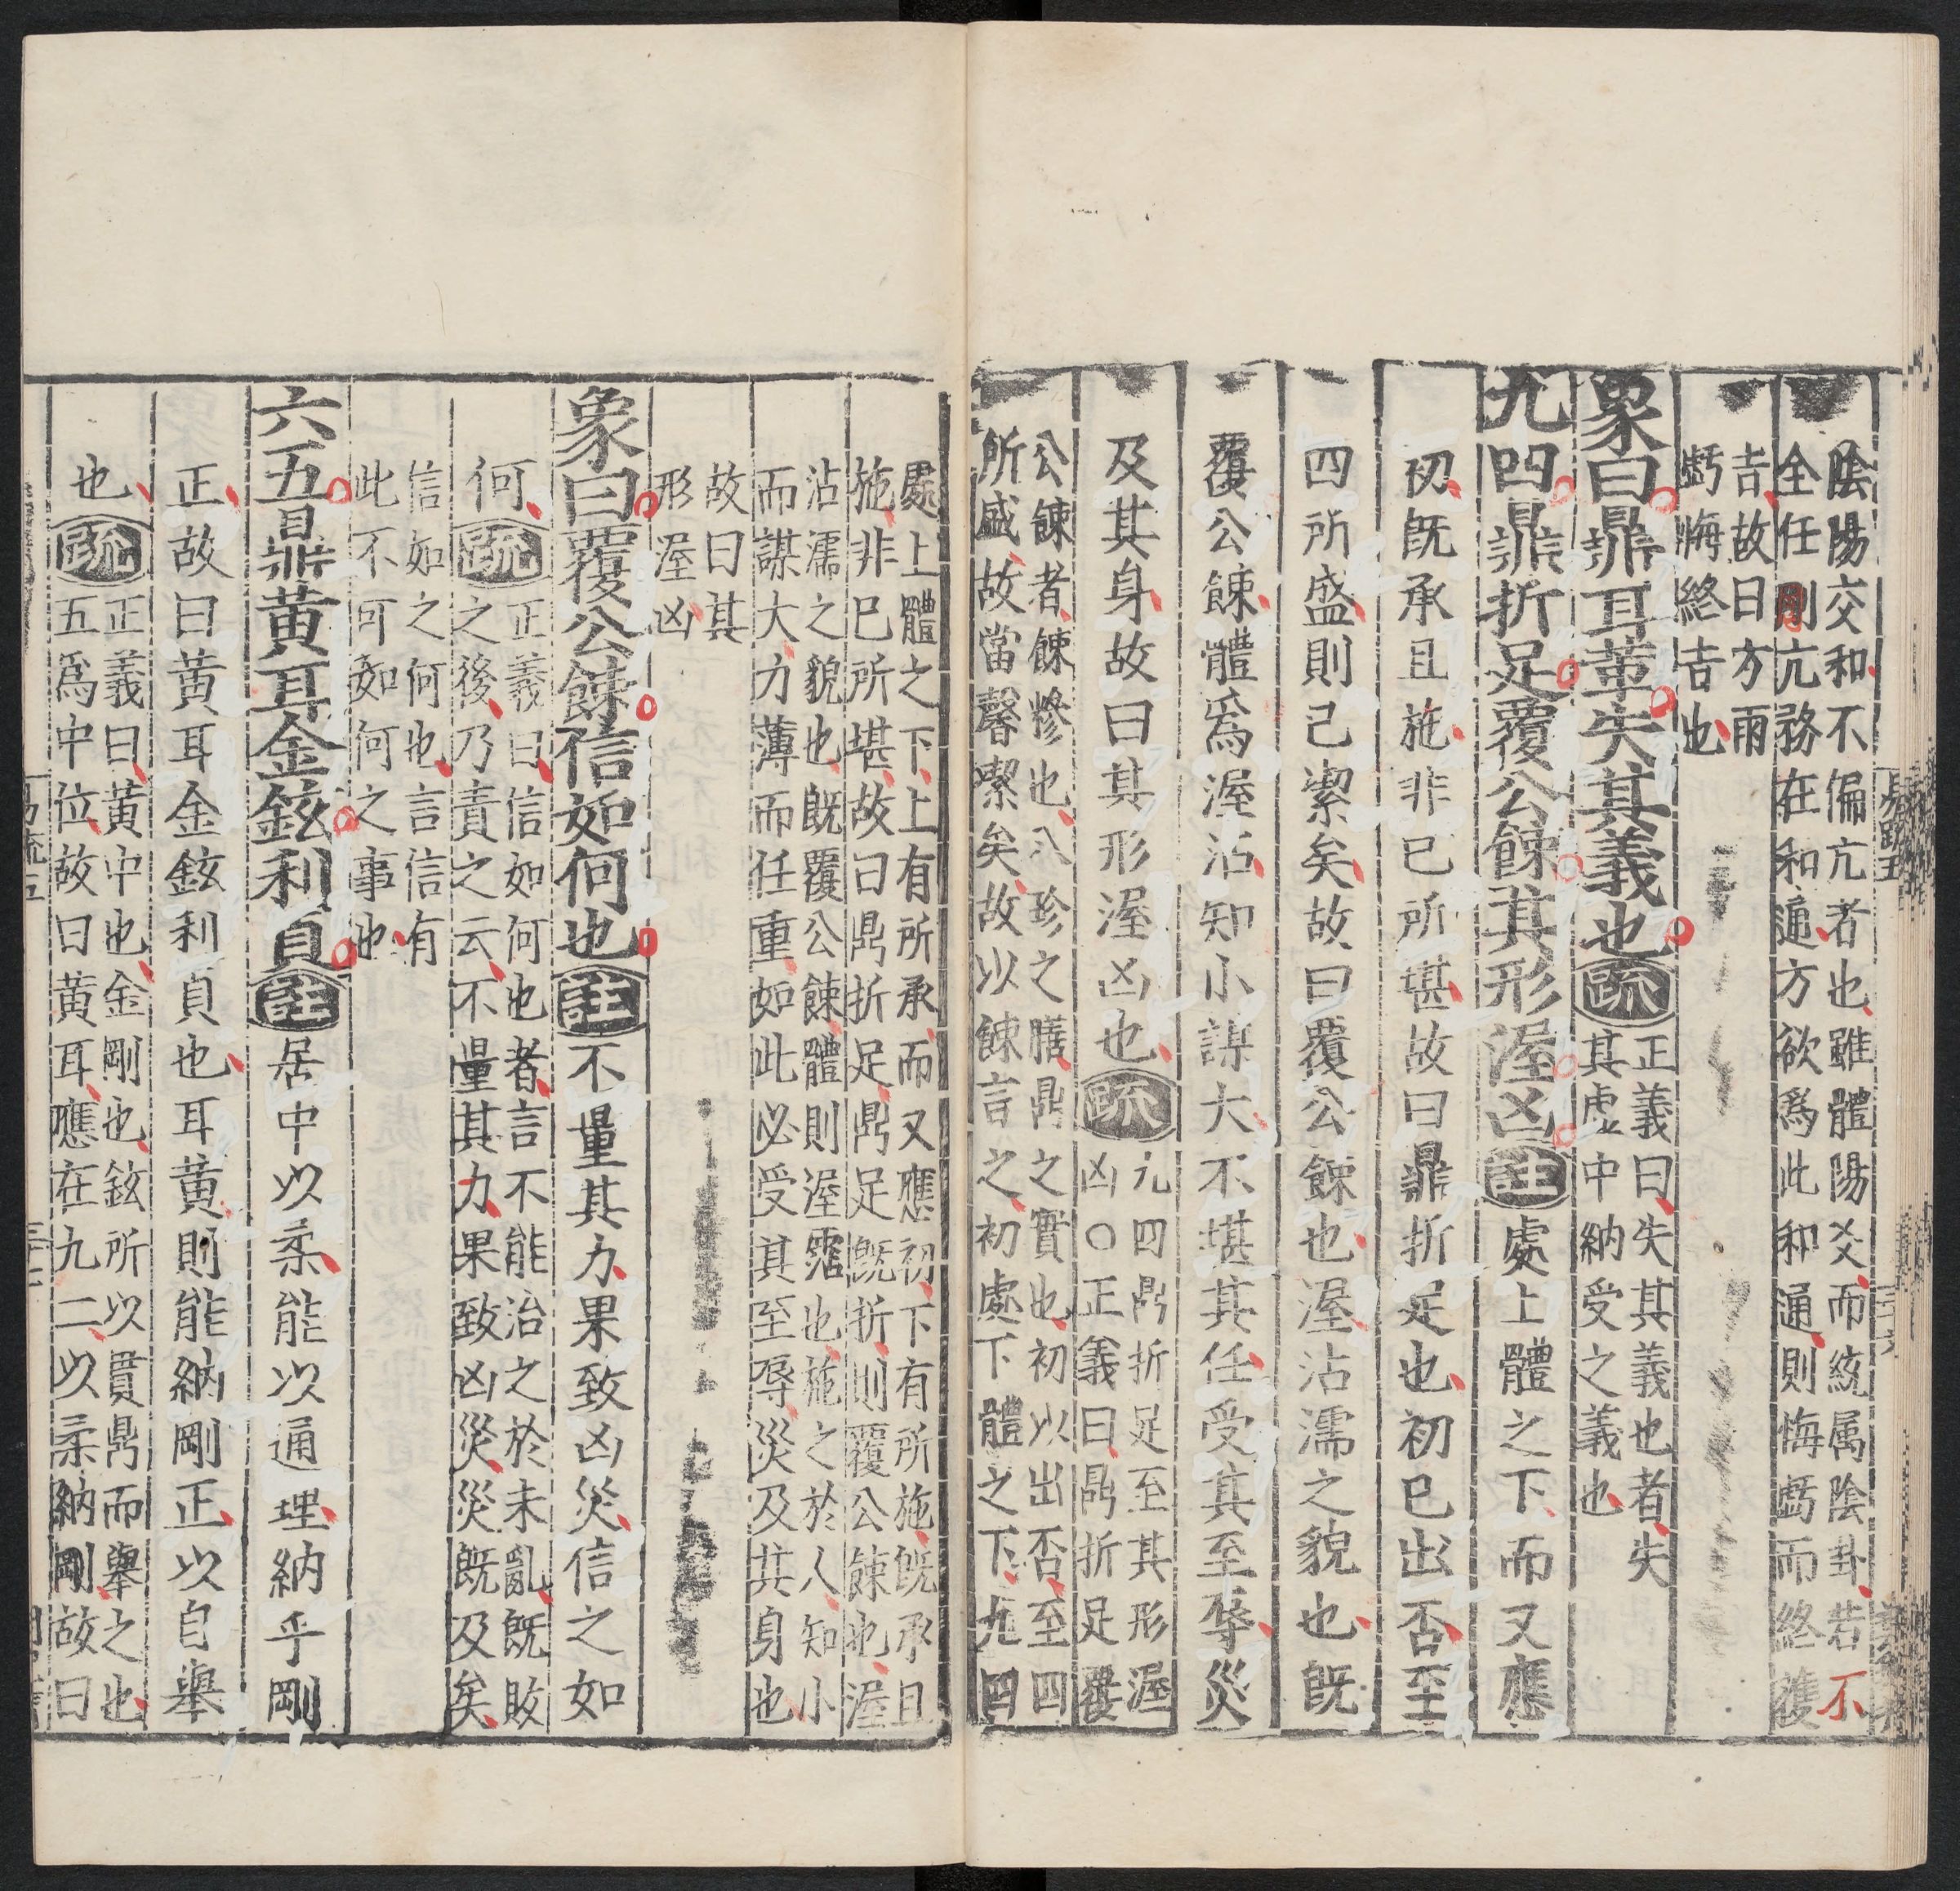 陰陽交和不偏亢者也雖體陽爻而統属陰卦若不
全任剛亢務在和通方欲爲此和通則悔虧而終獲
吉故曰方雨
虧悔終吉也
象曰鼎耳革失其義也疏
正義曰失其義也者失
其虚中納受之義也
九四鼎折足覆公餗其形渥凶註處上體之下而又應
初旣承且施非已所堪故曰鼎折足也初已出否至
四所盛則已㓗矣故曰覆公餗也渥沾濡之貌也旣
覆公餗體爲渥沾知小謀大不堪其任受其至辱災
及其身故曰其形渥凶也疏
九四鼎折足至其形渥
凶〇正義曰鼎折足覆
公餗者餗糝也八珍之膳鼎之實也初以出否至四
所盛故當馨㓗矣故以餗言之初處下體之下九四
處上體之下上有所承而又應初下有所施旣承且
施非已所堪故曰鼎折足鼎足旣折則覆公餗也渥
沾濡之貌也旣覆公餗體則渥霑也施之於人知小
而謀大力薄而任重如此必受其至辱災及其身也
故曰其
形渥凶
象曰覆公餗信如何也註不量其力果致凶災信之如
何疏
正義曰信如何也者言不能治之於未亂旣敗
之後乃責之云不量其力果致凶災災旣及矣
信如之何也言信有
此不可如何之事也
六五鼎黃耳金鉉利貞註居中以柔能以通理納乎剛
正故曰黃耳金鉉利貞也耳黃則能納剛正以自舉
也疏
正義曰黃中也金剛也鉉所以貫鼎而舉之也
五爲中位故曰黃耳應在九二以柔納剛故曰